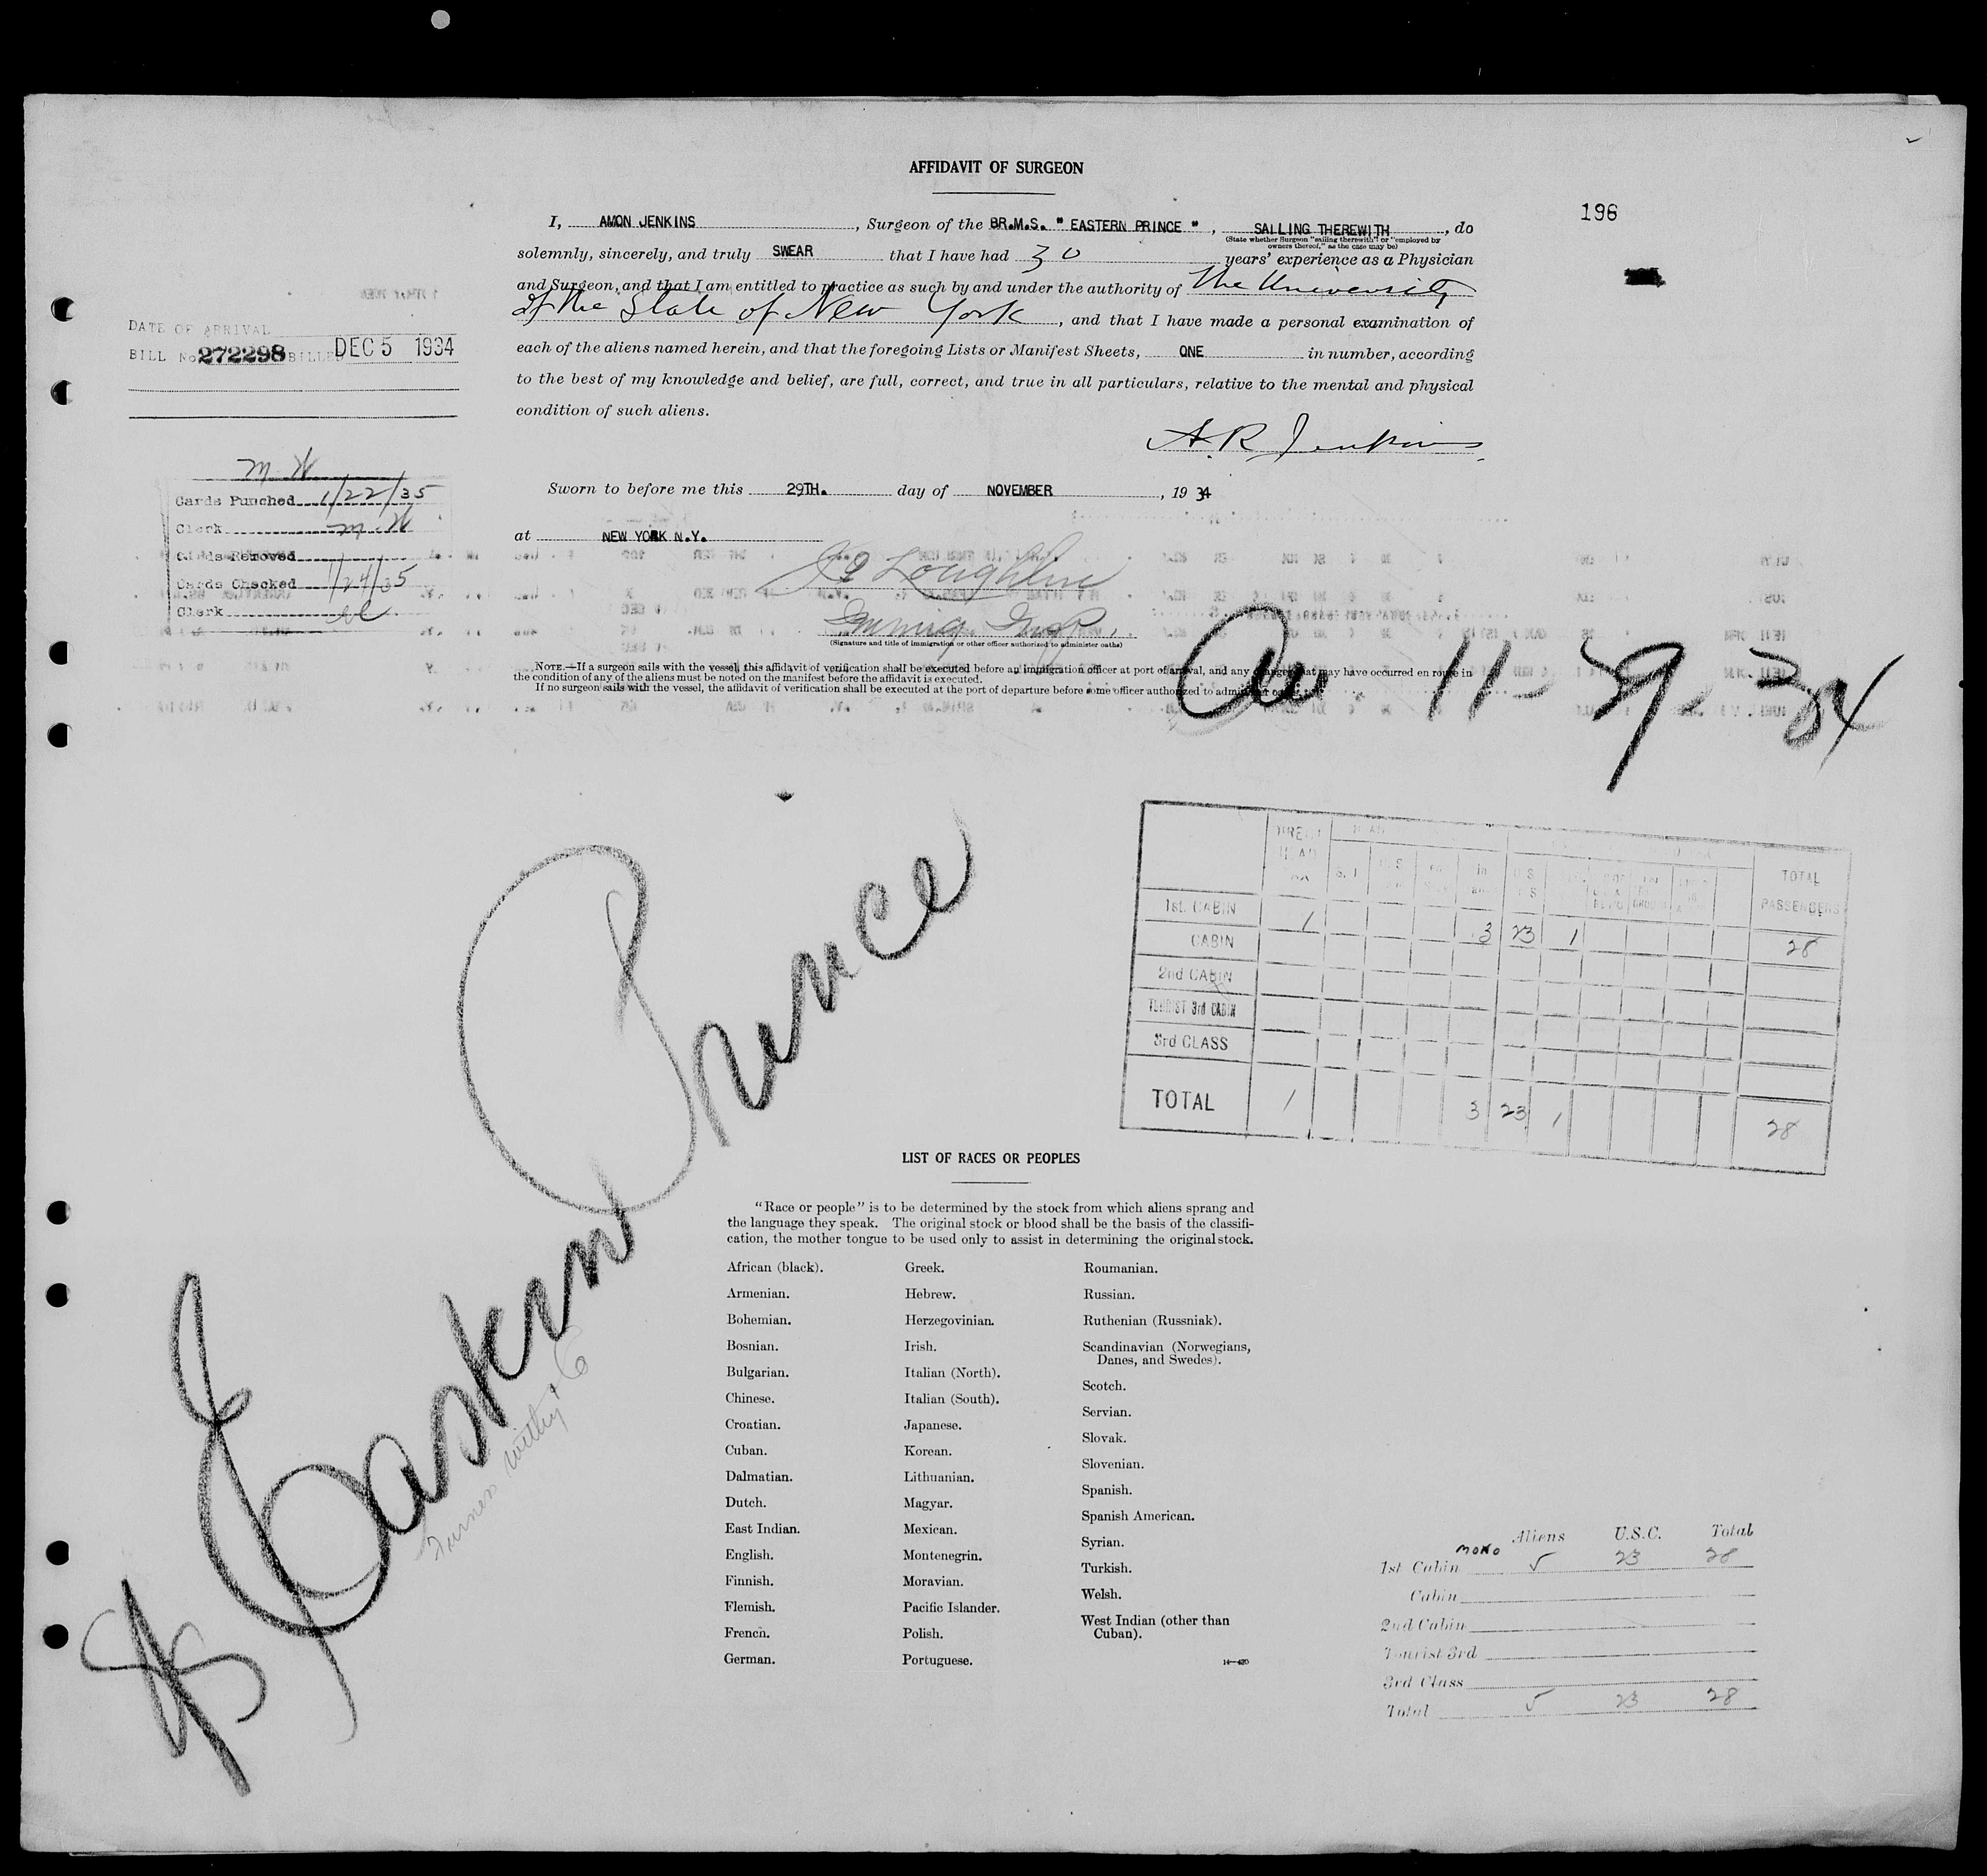 AFFIDAVIT OF SURGEON
196
I, AMON JENKINS, Surgeon of the BR.M.S. " EASTERN PRINCE ", SAILING THEREWITH, do
(State whether Surgeon "sailing therewith" or "employed by
owners thereof," as the case may be)
solemnly, sincerely, and truly SWEAR that I have had 30 years' experience as a Physician
and Surgeon, and that I am entitled to practice as such by and under the authority of The University
of the State of New York, and that I have made a personal examination of
each of the aliens named herein, and that the foregoing Lists or Manifest Sheets, ONE in number, according
to the best of my knowledge and belief, are full, correct, and true in all particulars, relative to the mental and physical
condition of such aliens.
A. R. Jenkins
Sworn to before me this 29TH. day of NOVEMBER, 1934
at NEW YORK N.Y.
Immig Insp.
(Signature and title of immigration or other officer authorized to administer oaths)
NOTE.—If a surgeon sails with the vessel, this affidavit of verification shall be executed before an immigration officer at port of arrival, and any changes that may have occurred en route in
the condition of any of the aliens must be noted on the manifest before the affidavit is executed.
If no surgeon sails with the vessel, the affidavit of verification shall be executed at the port of departure before some officer authorized to administer oaths.
DATE OF ARRIVAL
BILL No 272298 BILLED DEC 5 1934
M W
Cards Punched 1/22/35
Clerk M W
Cards Removed
Cards Checked 1/24/35
Clerk
11-29-34
S/S Eastern Prince
Furness Withy & Co
TOTAL
PASSENGERS
1st. CABIN 1 3 23 1 28
CABIN
2nd CABIN
TOURIST 3rd CABIN
3rd CLASS
TOTAL 1 3 23 1 28
LIST OF RACES OR PEOPLES
"Race or people" is to be determined by the stock from which aliens sprang and
the language they speak. The original stock or blood shall be the basis of the classifi-
cation, the mother tongue to be used only to assist in determining the original stock.
African (black).
Armenian.
Bohemian.
Bosnian.
Bulgarian.
Chinese.
Croatian.
Cuban.
Dalmatian.
Dutch.
East Indian.
English.
Finnish.
Flemish.
French.
German.
Greek.
Hebrew.
Herzegovinian.
Irish.
Italian (North).
Italian (South).
Japanese.
Korean.
Lithuanian.
Magyar.
Mexican.
Montenegrin.
Moravian.
Pacific Islander.
Polish.
Portuguese.
Roumanian.
Russian.
Ruthenian (Russniak).
Scandinavian (Norwegians,
Danes, and Swedes).
Scotch.
Servian.
Slovak.
Slovenian.
Spanish.
Spanish American.
Syrian.
Turkish.
Welsh.
West Indian (other than
Cuban).
14—420
Aliens U.S.C. Total
1st Cabin 5 23 28
Cabin
2nd Cabin
Tourist 3rd
3rd Class
Total 5 23 28